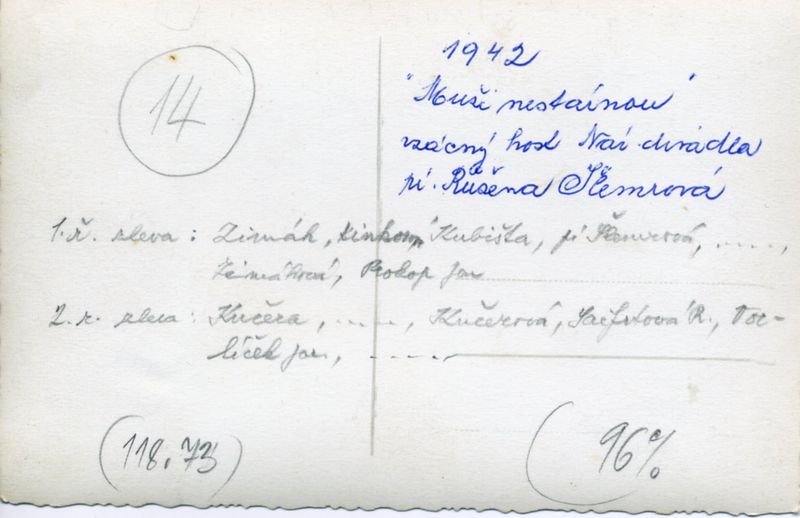 14
1942
"Muži nestárnou"
vzácný host Nár. divadla
pí. Růžena Šlemrová
1. ř. zleva: Zimák, Kubišta, pí Šlemrová, .....,
Zimáková, Prokop Jar
2. ř. zleva: Kučera, ....., Kučerová, R., Vor-
líček Jar., .....
(118.73)
( 96%